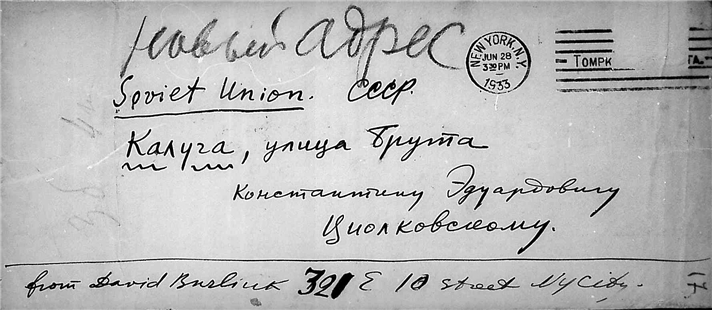 Новый адрес
NEW YORK, N.Y.
JUN 28
3 30 PM
1933
Томрк
га.
Soviet Union. СССР.
Калуга, улица Брута
Константину Эдуардовичу
Циолковскому.
from David Burliuk 321 E 10 street NY City.